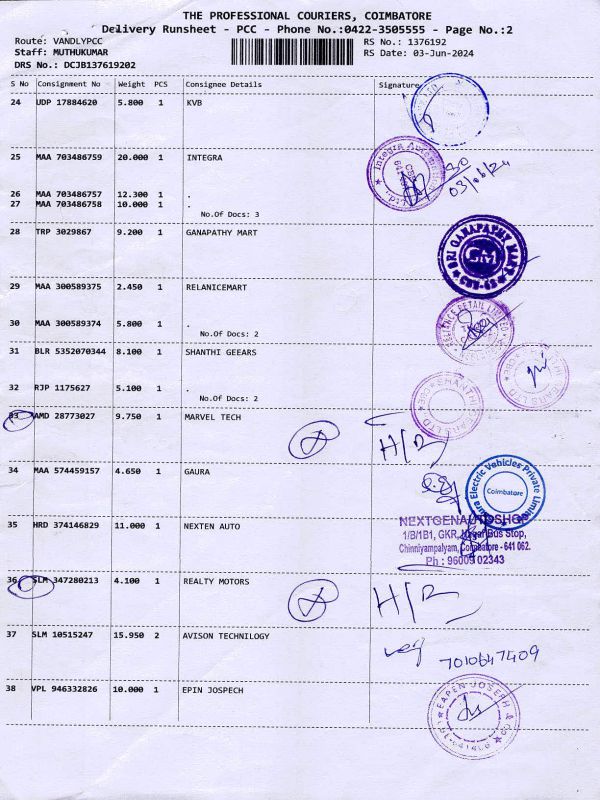 THE PROFESSIONAL COURIERS, COIMBATORE
Delivery Runsheet - PCC - Phone No.:0422-3505555 - Page No.:2
Route: VANDLYPCC
RS No.: 1376192
Staff: MUTHUKUMAR
RS Date: 03-Jun-2024
DRS No.: DCJB137619202
S No Consignment No Weight PCS Consignee Details Signature
24 UDP 17884620 5.800 1 KVB
25 MAA 703486759 20.000 1 INTEGRA
03/06/24
26 MAA 703486757 12.300 1 .
27 MAA 703486758 10.000 1 .
No.Of Docs: 3
28 TRP 3029867 9.200 1 GANAPATHY MART
SRI GANAPATHY MART
GM
29 MAA 300589375 2.450 1 RELANICEMART
30 MAA 300589374 5.800 1 .
No.Of Docs: 2
RELIANCE RETAIL LIMITED
31 BLR 5352070344 8.100 1 SHANTHI GEEARS
32 RJP 1175627 5.100 1 .
No.Of Docs: 2
33 AMD 28773027 9.750 1 MARVEL TECH
34 MAA 574459157 4.650 1 GAURA
Electric Vehicles Private
Coimbatore
35 HRD 374146829 11.000 1 NEXTEN AUTO
NEXTGENAUTOSHOP
1/B/1B1, GKR, Nagar Bus Stop,
Chinniyampalyam, Coimbatore - 641 062.
Ph : 96009 02343
36 SLM 347280213 4.100 1 REALTY MOTORS
37 SLM 10515247 15.950 2 AVISON TECHNILOGY
7010647409
38 VPL 946332826 10.000 1 EPIN JOSPECH
EAPEN JOSEPH & CO